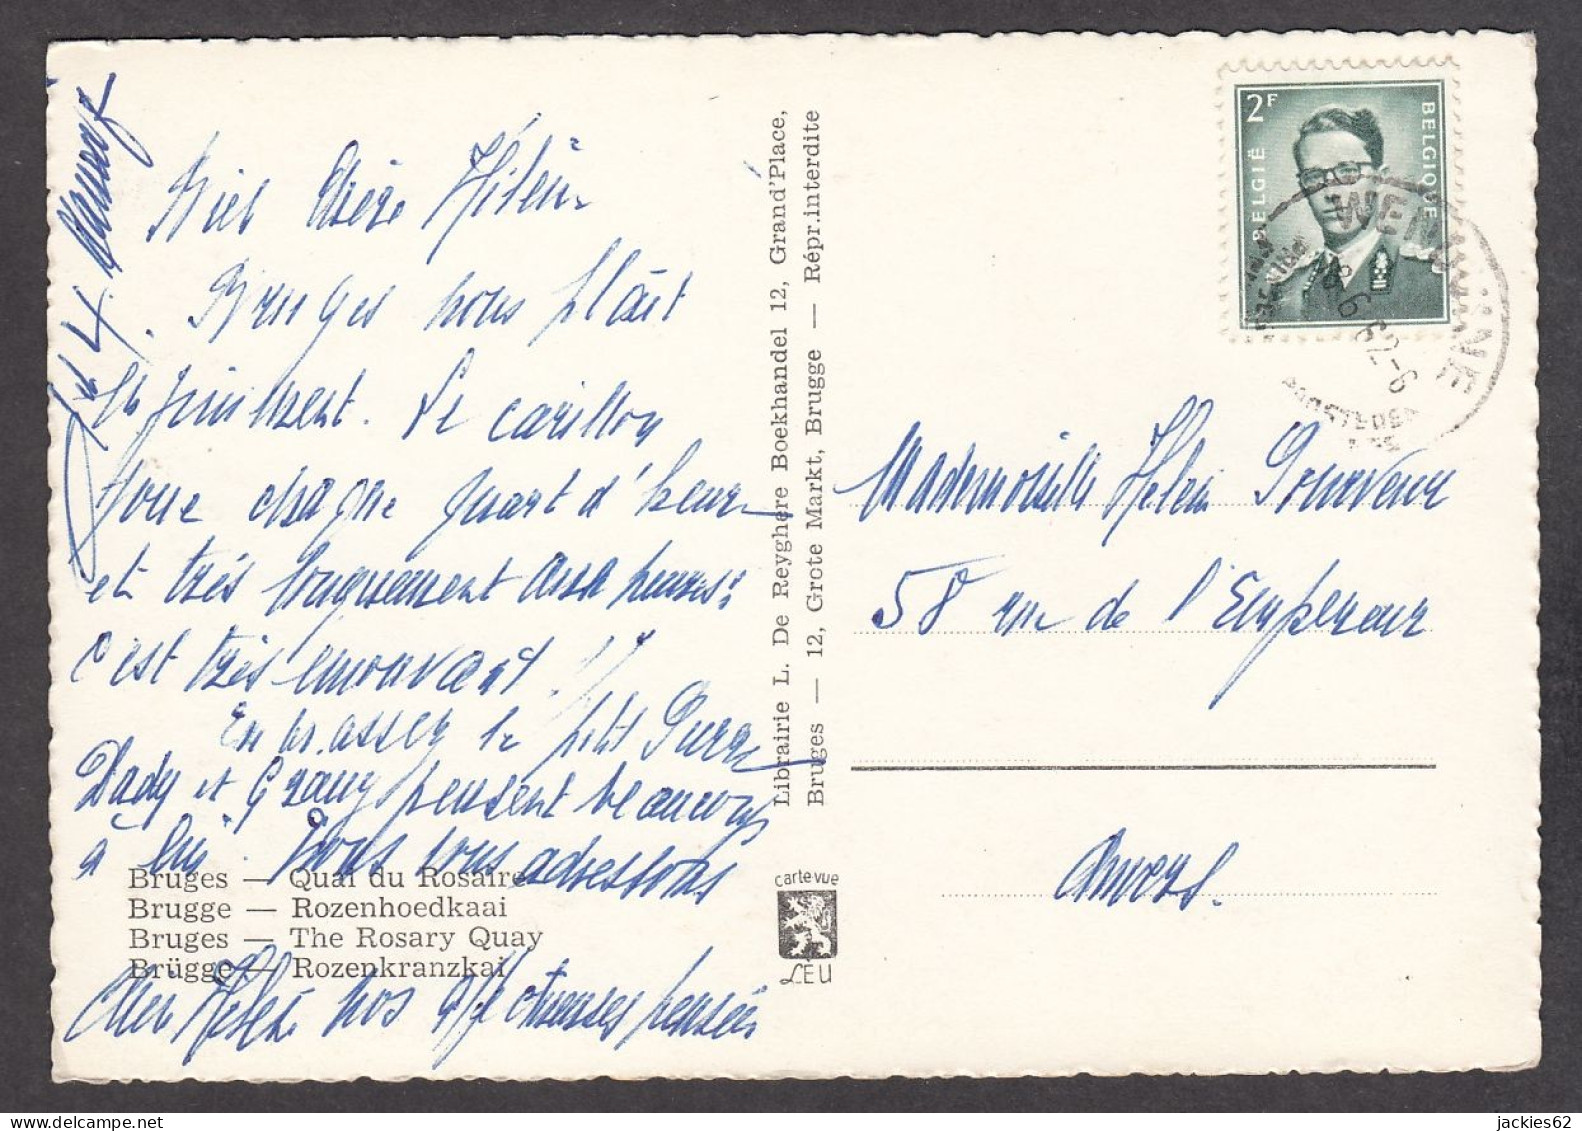 Bien Chère Hélène
Bruges nous plaît
infiniment. Le carillon
joue chaque quart d'heure
et très longuement aux heures:
c'est très émouvant!!
Embrassez le petit Pierre
Dady et Grany pensent beaucoup
à lui. Nous vous adressons
Chère Hélène nos affectueuses pensées
Bruges — Quai du Rosaire
Brugge — Rozenhoedkaai
Bruges — The Rosary Quay
Brügge — Rozenkranzkai
Librairie L. De Reyghere Boekhandel 12, Grand'Place,
Bruges — 12, Grote Markt, Brugge — Répr.interdite
carte-vue
LEU
2F
BELGIË
BELGIQUE
WENDUINE
6.62-6
Mademoiselle Hélène
58 rue de l'Empereur
Anvers.
jackies62